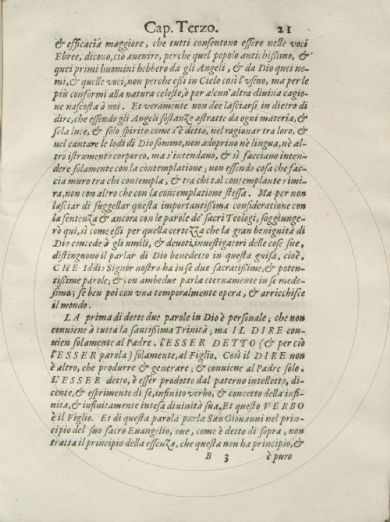 Cap. Terzo. 21
& efficacia maggiore, che tutti consentono essere nelle voci
Ebree, dicono, ciò auenire, perche quel popolo antichissimo, &
quei primi huomini hebbero da gli Angeli, & da Dio quei no-
mi, & quelle voci, non perche essi in Cielo così l'vsino, ma per le
più conformi alla natura celeste, ò per alcun'altra diuina cagione
nascosta à noi. Et veramente non dee lasciarsi in dietro di
dire, che essendo gli Angeli sostanze astratte da ogni materia, &
sola luce, & solo spirito come s'è detto, nel ragionar tra loro, &
nel cantare le lodi di Dio sommo, non adoprino nè lingua, nè al-
tro istrumento corporeo, ma s'intendano, & si facciano inten-
dere solamente con la contemplatione; non essendo cosa che fac-
cia muro tra chi contempla, & tra chi tal contemplante rimi-
ra, non con altro che con la contemplatione stessa. Ma per non
lasciar di suggellar questa importantissima consideratione con
la sentenza & ancora con le parole de' sacri Teologi, soggiunge-
rò qui, sì come essi per quella certezza che la gran benignità di
Dio concede à gli umili, & deuoti inuestigatori delle cose sue,
distinguono il parlar di Dio benedetto in questa guisa, cioè,
CHE Iddio Signor nostro ha in se due sacratissime, & poten-
tissime parole; & con ambedue parla eternamente in se mede-
simo; se ben poi con vna temporalmente opera, & arricchisce
il mondo.
LA prima di dette due parole in Dio è personale; che non
conuiene à tutta la santissima Trinità; ma IL DIRE con-
uien solamente al Padre. l'ESSER DETTO (& per ciò
l'ESSER parola) solamente, al Figlio. Così il DIRE non
è altro, che produrre & generare; & conuiene al Padre solo.
L'ESSER detto, è esser prodotto dal paterno intelletto, di-
cente, & esprimente di se, infinito verbo, & concetto della infi-
nita, & infinitamente intesa diuinità sua. Et questo VERBO
è il Figlio. Et di questa parola parla San Giouanni nel prin-
cipio del suo sacro Euangelio, oue, come è detto di sopra, non
tratta il principio della essenza, che questa non ha principio, &
B 3 è puro